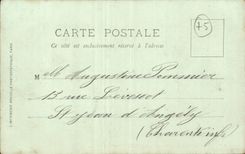 45
CARTE POSTALE
Ce côté est exclusivement réservé à l'adresse
Mell Augustine Pommier
13 rue Levescot
St Jean d'Angély
(Charente Infre